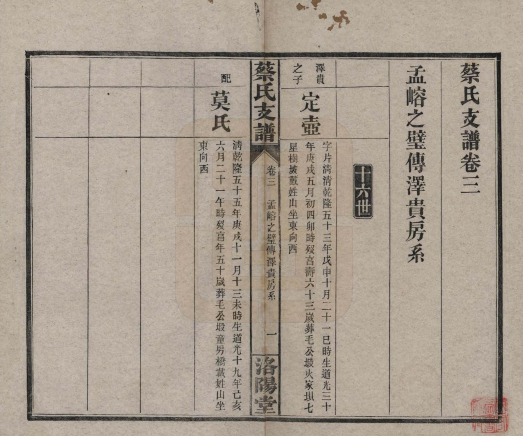 蔡氏支譜卷三
孟嵱之璧傳澤貴房系
十六世
澤貴
之子
定壺
字片清清乾隆五十三年戊申十月二十一巳時生道光三十
年庚戌五月初四卯時歿享壽六十三歲葬毛公塅火家垻七
屋樹坡戴姓山坐東向西
蔡氏支譜
卷三
孟嵱之璧傳澤貴房系
一
洛陽堂
配
莫氏
清乾隆五十五年庚戌十一月十三未時生道光十九年己亥
六月二十一午時歿享年五十歲葬毛公塅童男橋戴姓山坐
東向西